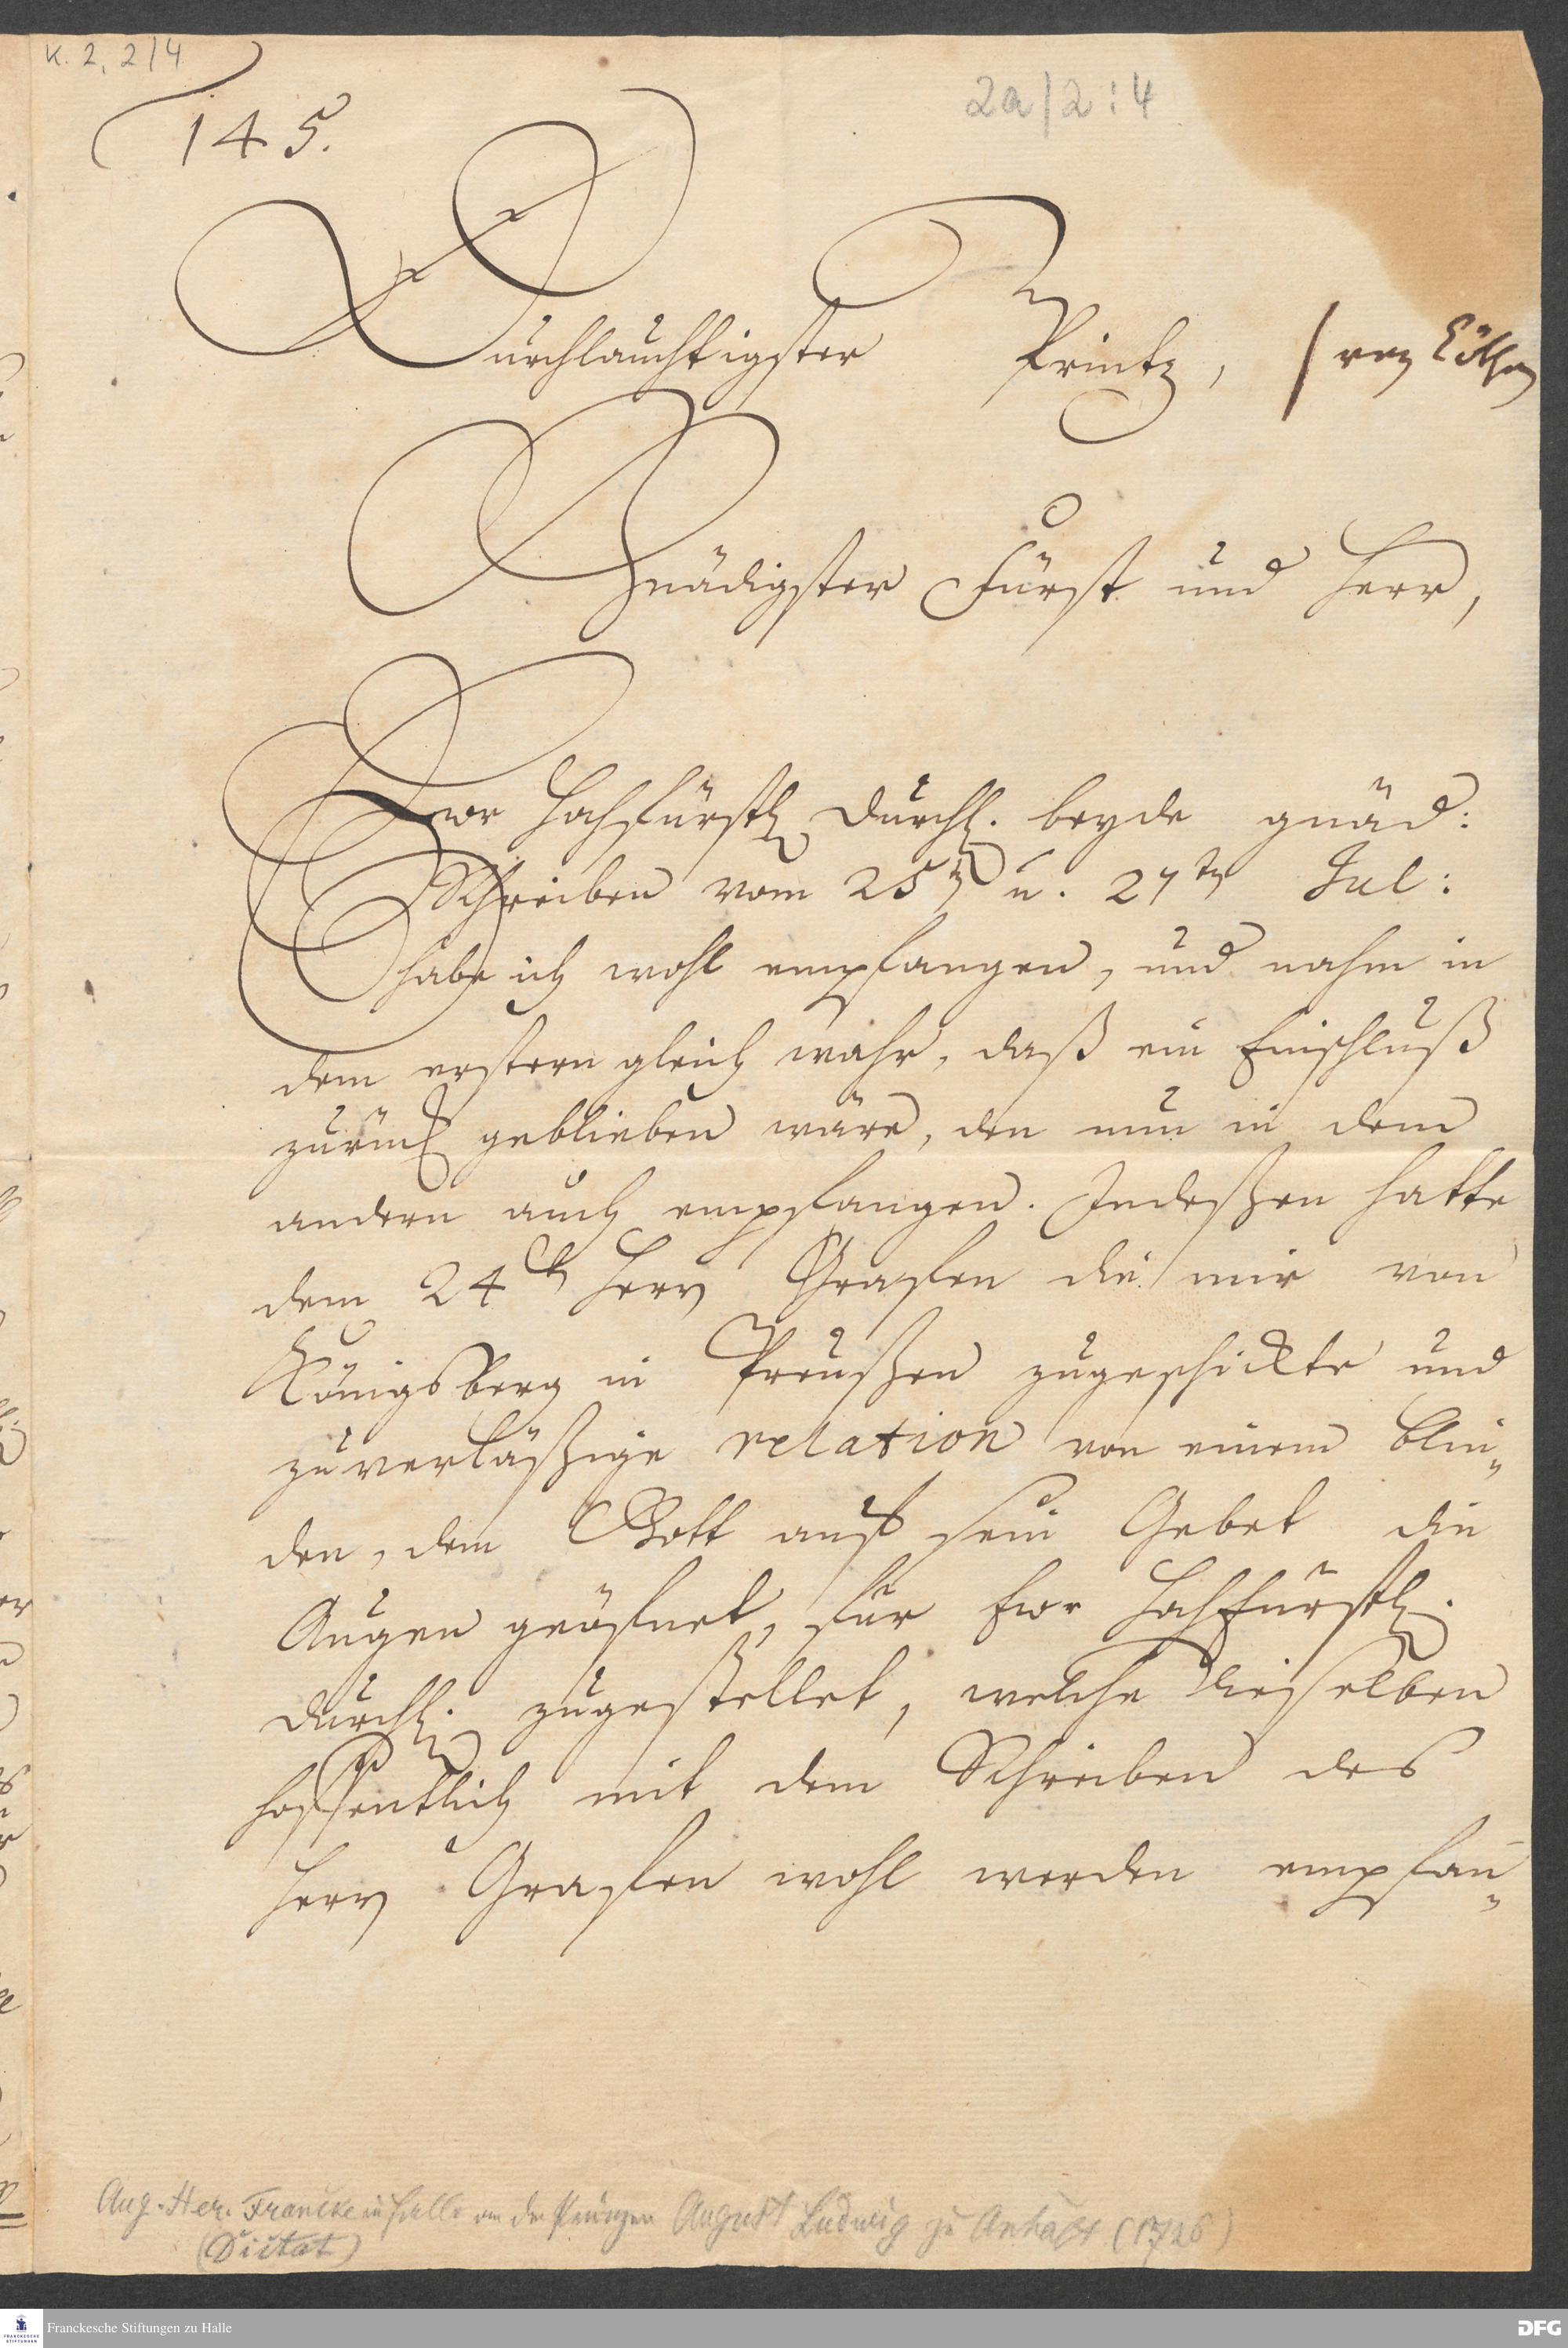 K. 2, 2/4
2a/2:4
145.
Durchlauchtigster Printz, / von Cöthen
Gnädigster Fürst und Herr,
Ewr Hochfürstl. Durchl. beyde gnäd:
Schreiben vom 25ten u. 27ten Jul:
habe ich wohl empfangen, und nahm in
dem erstern gleich wahr, daß ein Einschluß
zurück geblieben wäre, den nun in dem
andern auch empfangen. Indeßen hatte
dem 24ten Herrn Grafen die mir von
Königsberg in Preußen zugeschickte und
zuverläßige relation von einem Blin„
den, dem Gott auf sein Gebet die
Augen geöfnet, für Ewr Hochfürstl.
Durchl. zugestellet, welche dieselben
hoffentlich mit dem Schreiben des
Herrn Grafen wohl werden empfan„
Aug. Her. Francke in Halle an den Prinzen August Ludwig zu Anhalt (1726)
(Dictat)
Franckesche Stiftungen zu Halle
DFG